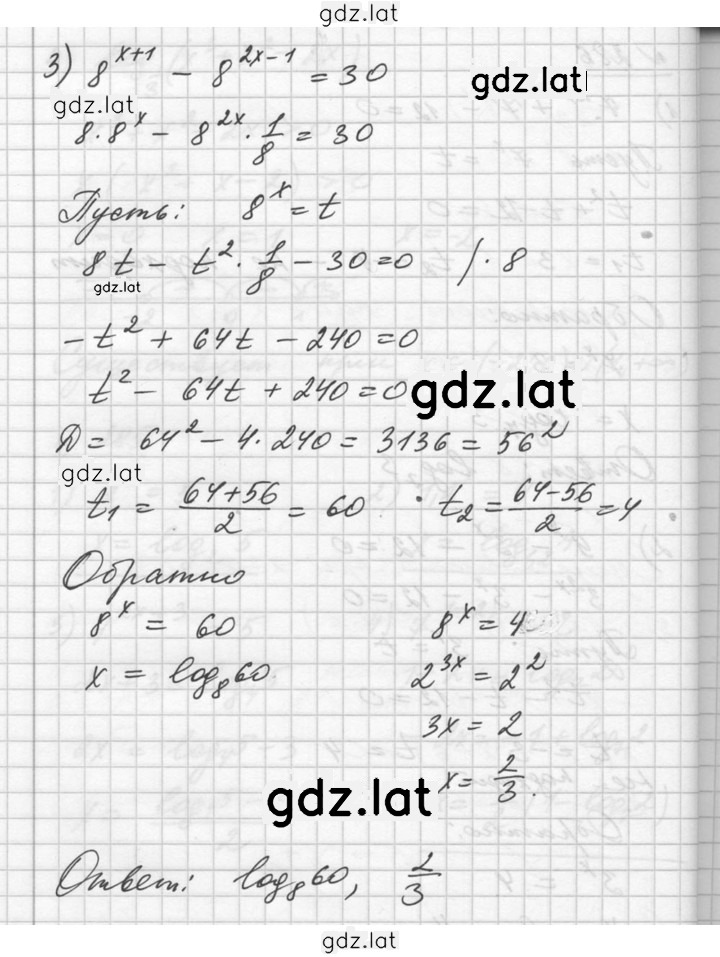 gdz.lat
3) 8^{x+1} - 8^{2x-1} = 30 gdz.lat
gdz.lat
8·8^x - 8^{2x}·1/8 = 30
Пусть: 8^x = t
8t - t^2·1/8 - 30 = 0 /·8
gdz.lat
-t^2 + 64t - 240 = 0
t^2 - 64t + 240 = 0 gdz.lat
Д = 64^2 - 4·240 = 3136 = 56^2
gdz.lat
t_1 = (64+56)/2 = 60 · t_2 = (64-56)/2 = 4
Обратно
8^x = 60 8^x = 4
x = log_8 60 2^{3x} = 2^2
3x = 2
gdz.lat x = 2/3.
Ответ: log_8 60, 2/3
gdz.lat